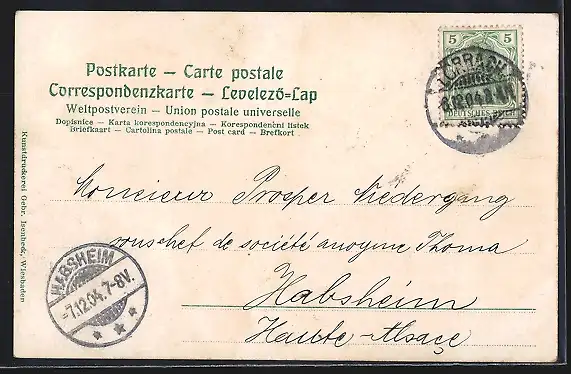 Postkarte – Carte postale
Correspondenzkarte – Levelező=Lap
Weltpostverein – Union postale universelle
Dopisnice – Karta korespondencyjna – Korespondenční lístek
Briefkaart – Cartolina postale – Post card – Brefkort
5 5
DEUTSCHES REICH
LÖRRACH
6.12.04.
Kunstdruckerei Gebr. Isenbeck, Wiesbaden
Monsieur Prosper Niedergang
sous chef de société anonyme Thoma
Habsheim
Haute-Alsaçe
HABSHEIM
-7.12.04.7-8V.